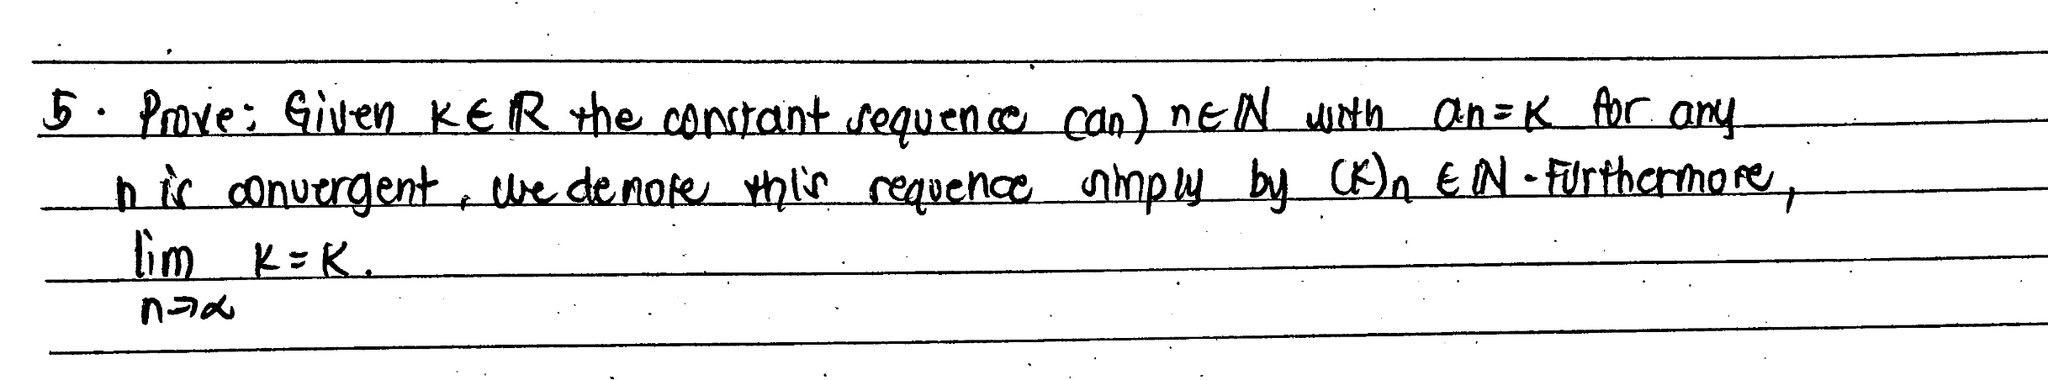 5. Prove: Given K ∈ ℝ the constant sequence (an) n∈ℕ with an = K for any
n is convergent, we denote this sequence simply by (K)n ∈ ℕ. Furthermore,
lim K = K.
n→∝